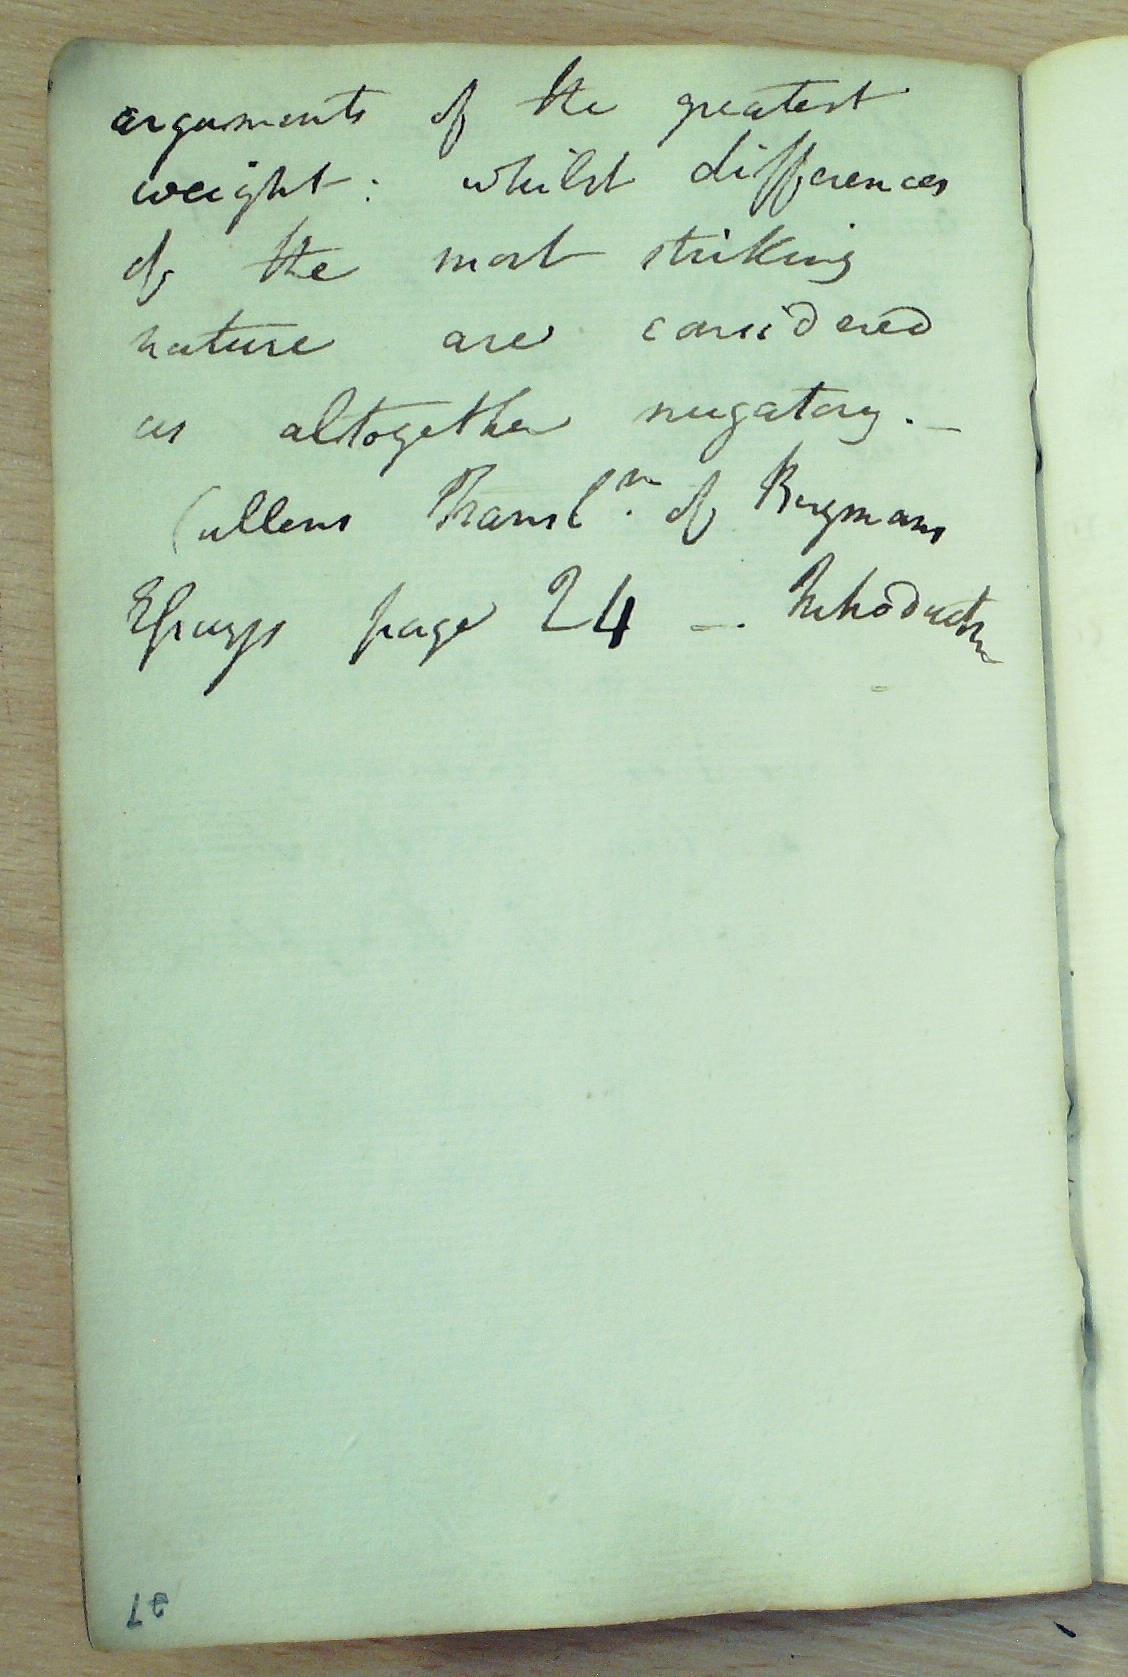 arguments of the greatest
weight: whilst differences
of the most striking
nature are considered
as altogether nugatory. _
Cullens Transl.n of Bergmans
Essays page 24 _. Introductn